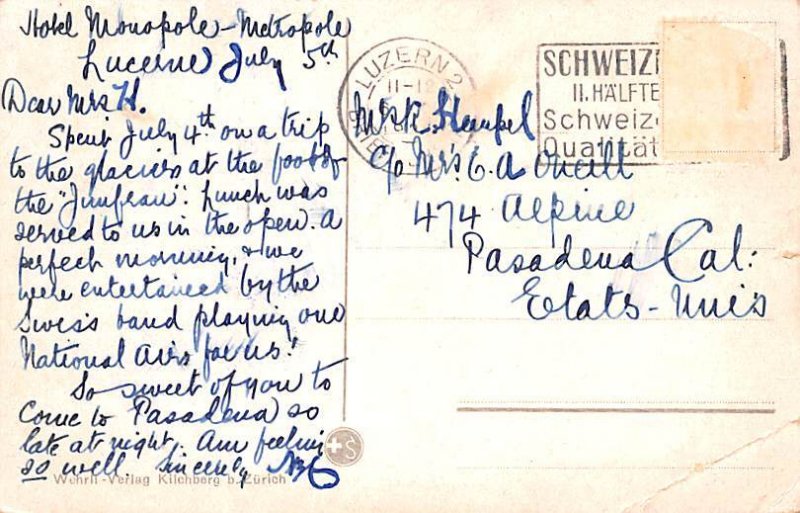 Hotel Monopole-Metropole
Lucerne July 5th
Dear Mrs H.
Spent July 4th on a trip
to the glaciers at the foot of
the "Junfrau". Lunch was
served to us in the open. A
perfect morning, & we
were entertained by the
Swiss band playing our
National Airs for us!
So sweet of you to
come to Pasadena so
late at night. Am feeling
so well. Sincerely
Wehrli-Verlag Kilchberg b. Zürich
LUZERN 2
SCHWEIZ
II. HÄLFTE
Schweiz
Qualität
Mrs K. Hempel
c/o Mrs. C. A. Oneill
474 Alpine
Pasadena Cal:
Etats-Unis
+S